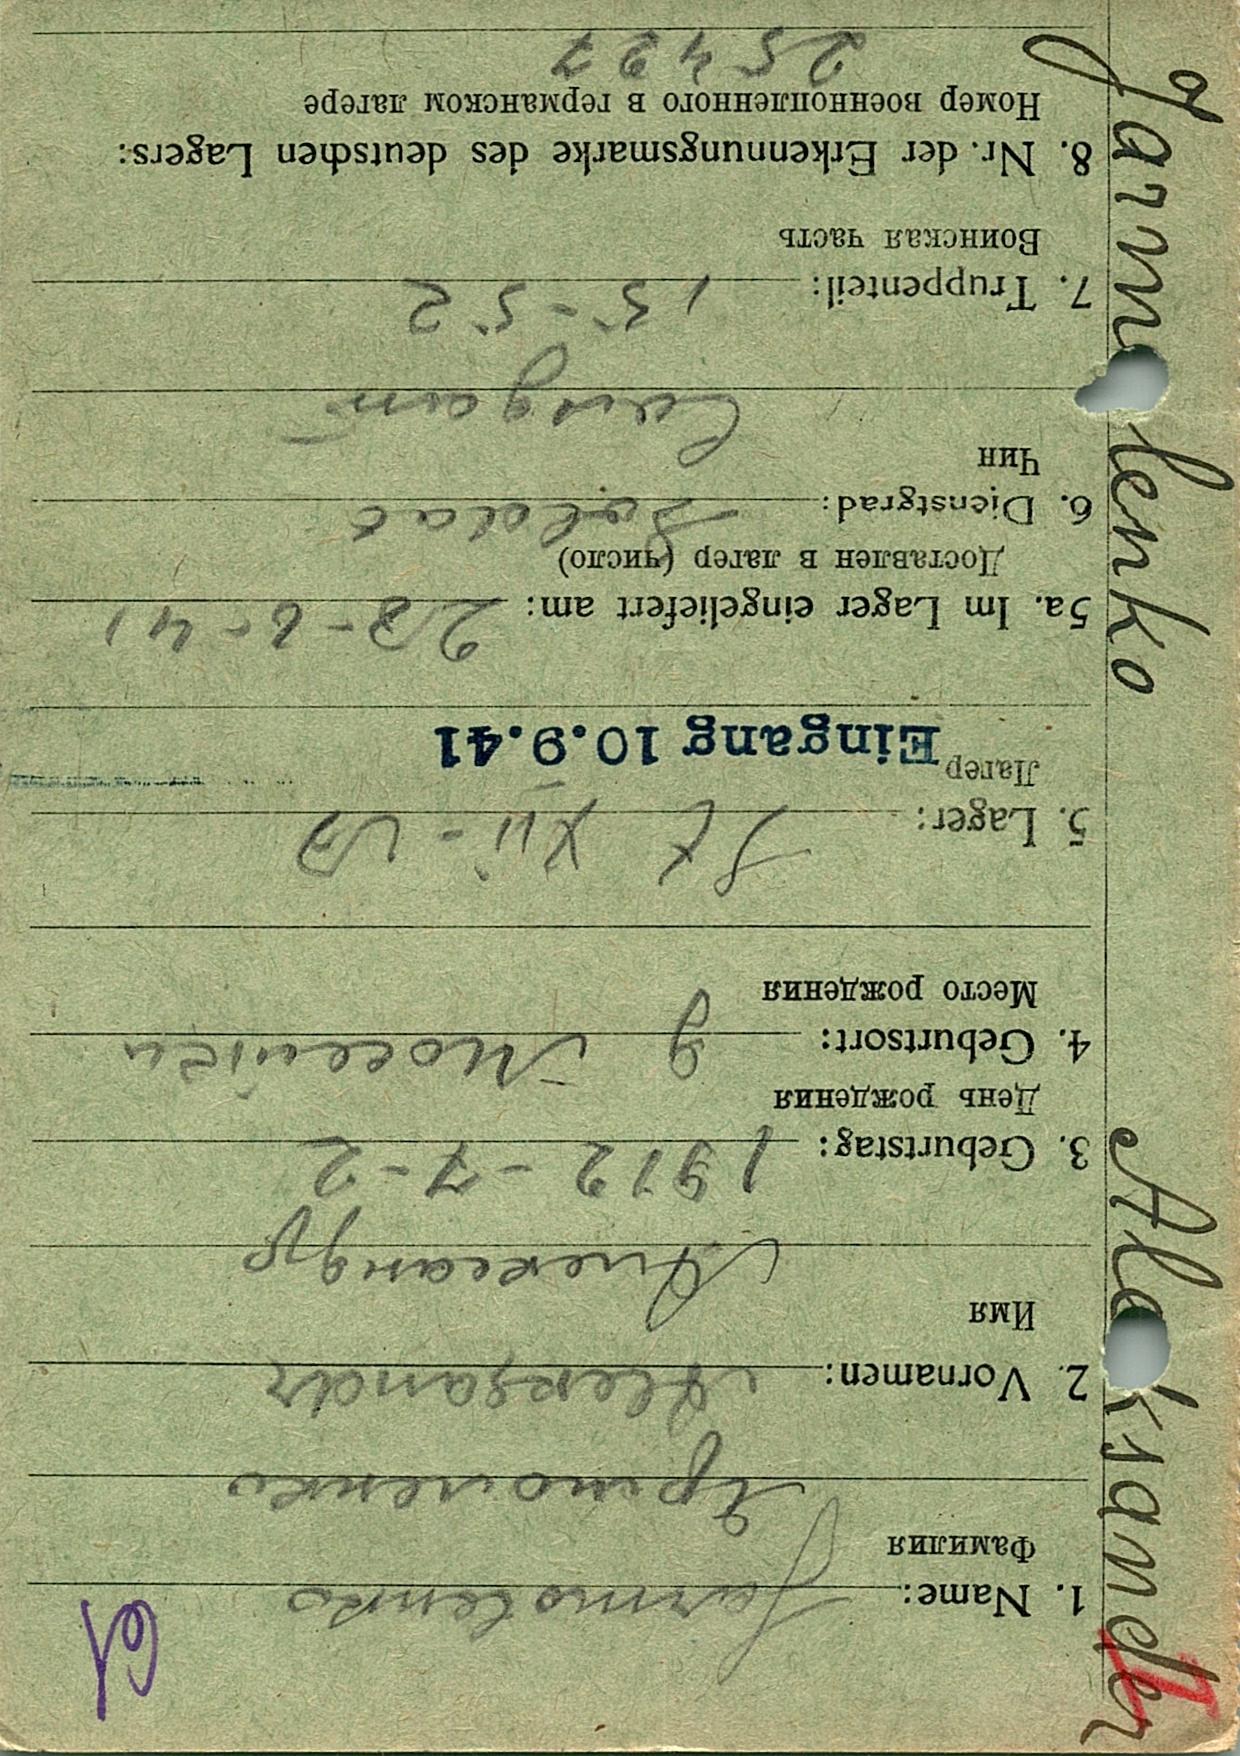 Jarmolenko Alaksander
1. Name: Jarmolenko
Фамилия
Ярмоленко
2. Vornamen: Aleksandr
Имя
Александр
3. Geburtstag: 1912-7-2
День рождения
4. Geburtsort: д
Место рождения
5. Lager: St XII-
Лагер
Eingang 10.9.41
5a. Im Lager eingeliefert am: 28-6-41
Доставлен в лагер (число)
6. Dienstgrad: Soldat
Чин
Солдат
7. Truppenteil: 15-52
Воинская часть
8. Nr. der Erkennungsmarke des deutschen Lagers:
Номер военнопленного в германском лагере
25427